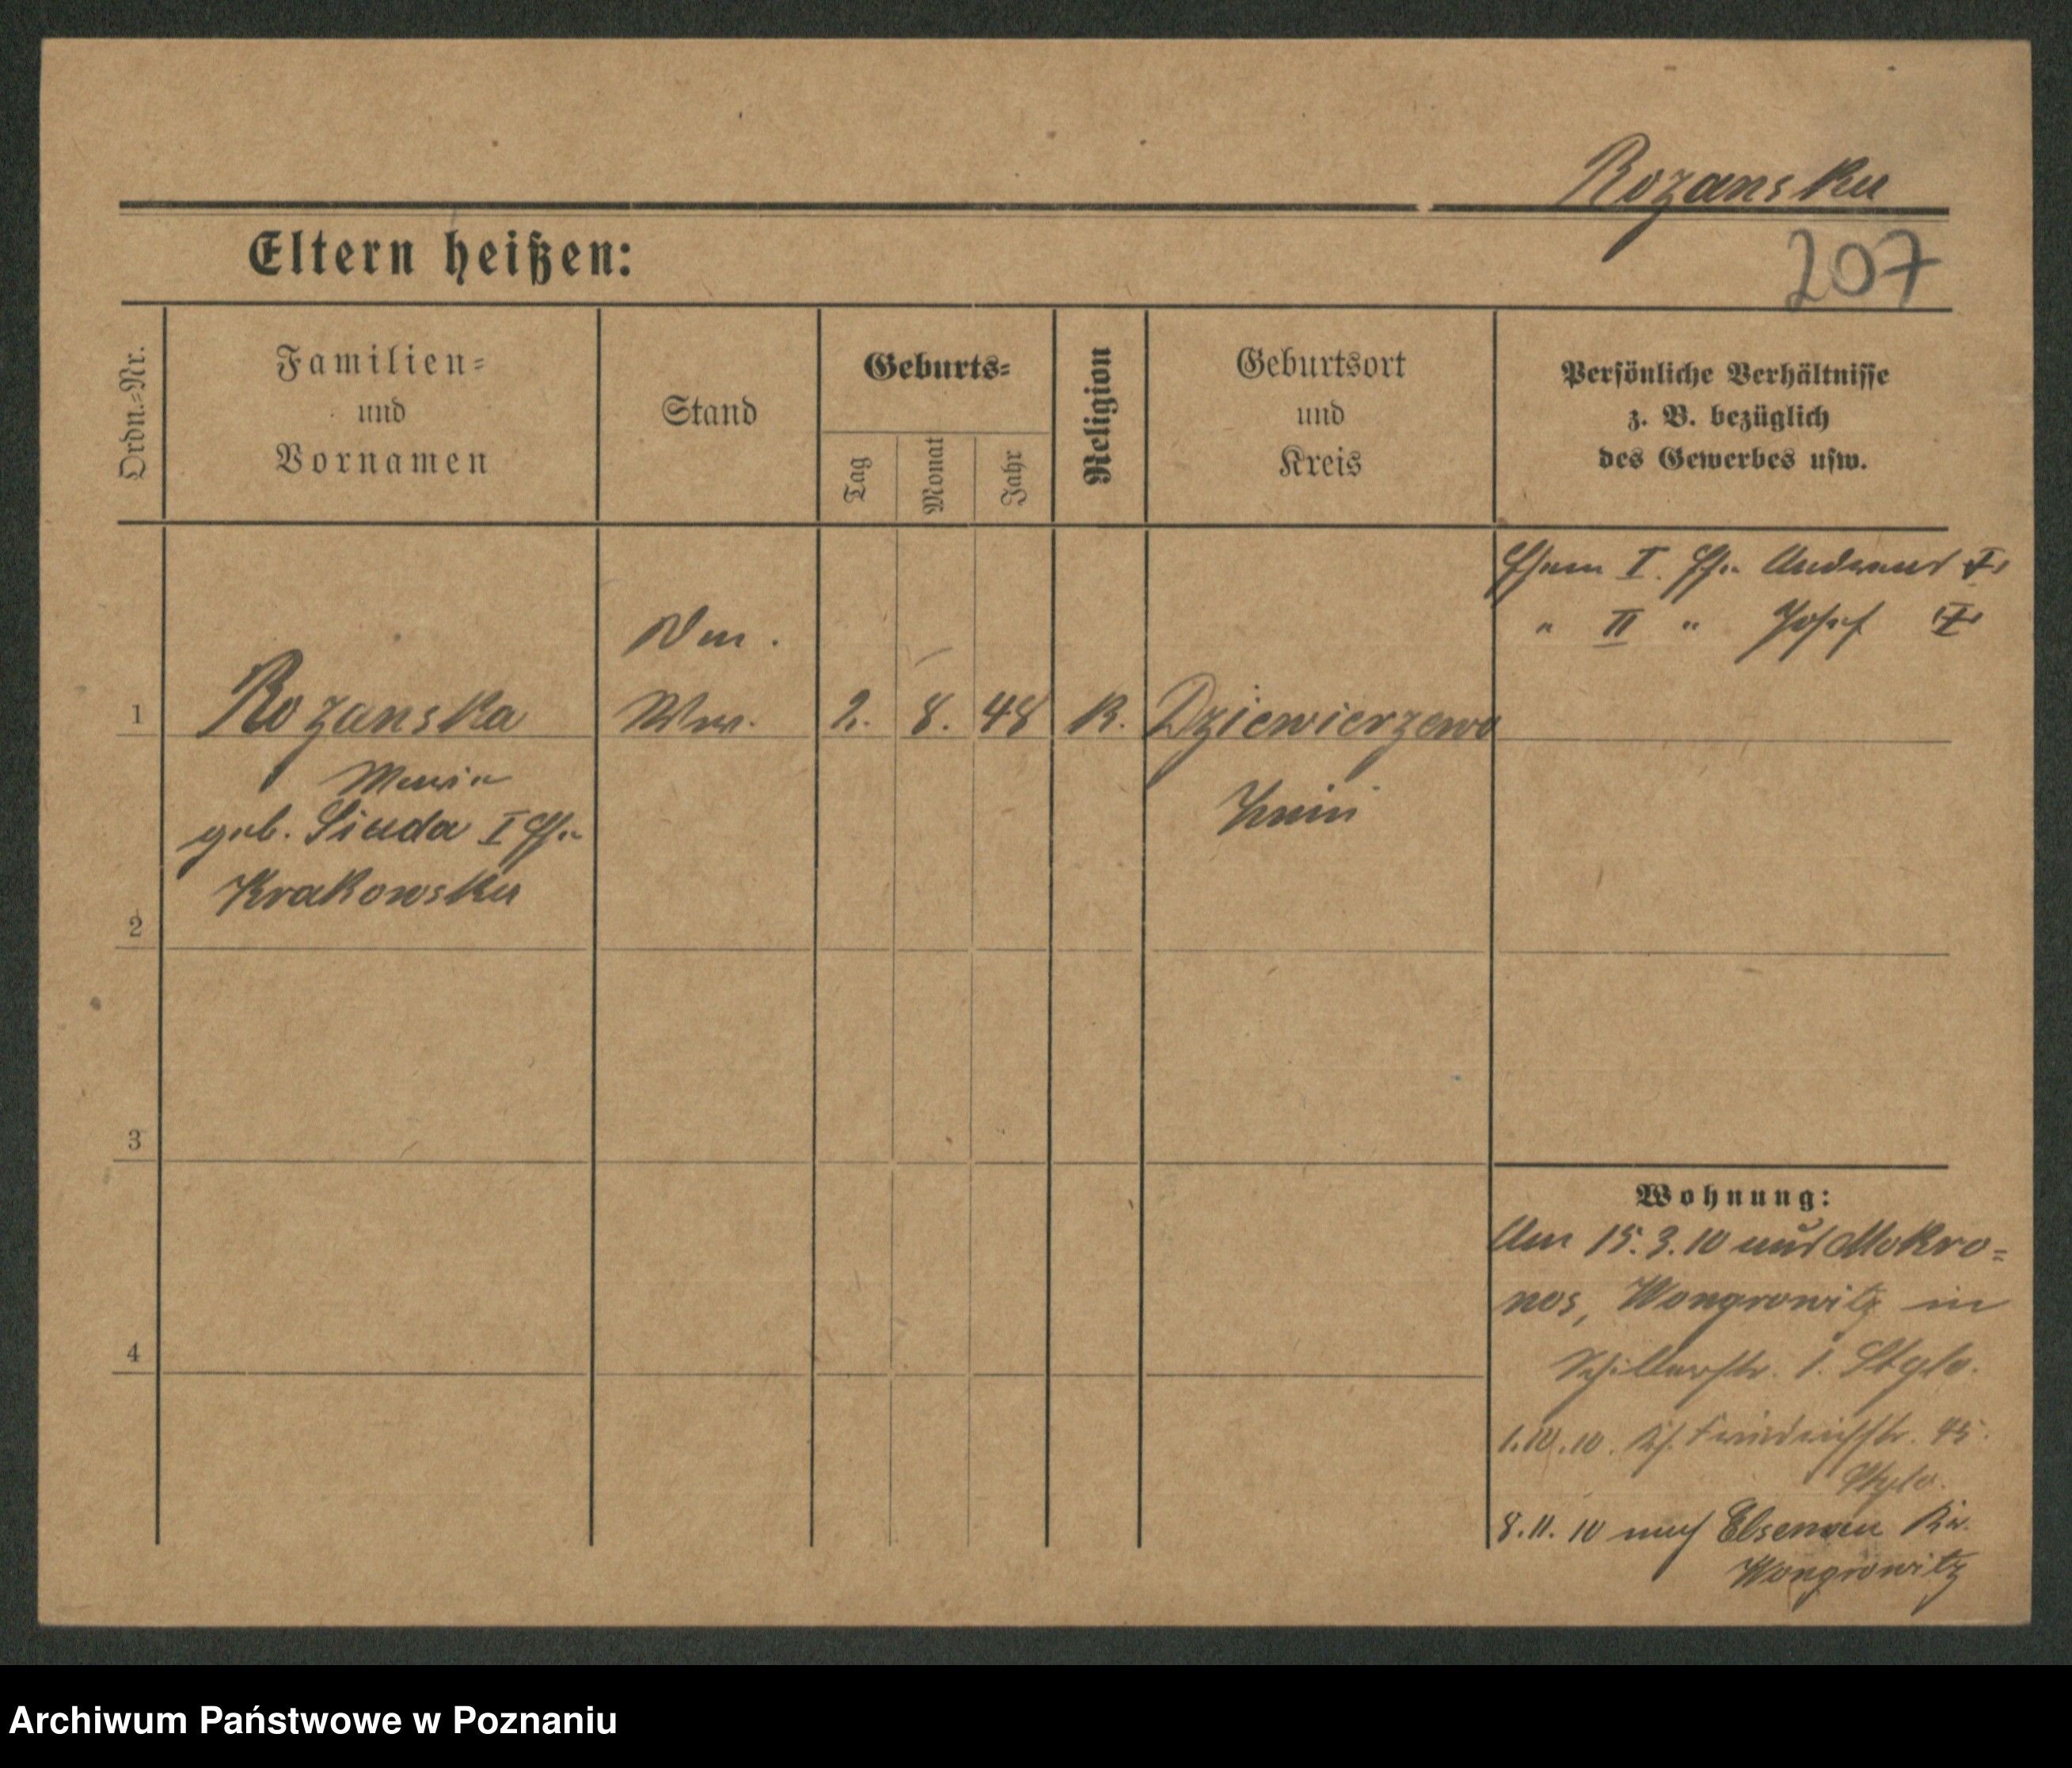 Rozanska
207
Eltern heißen:
Ordn.=Nr.
Familien=
und
Vornamen
Stand
Geburts=
Tag
Monat
Jahr
Religion
Geburtsort
und
Kreis
Persönliche Verhältnisse
z. B. bezüglich
des Gewerbes usw.
I. Andreas
" II " Josef
1
Rozanska
Ww.
2.
8.
48
K.
Dziewierzewo
Maria
Znin
geb. Siuda I
Krakowska
2
3
4
Wohnung:
Am 15.3.10 aus Mokro=
nos, Wongrowitz in
Schillerstr. 1.
1.10.10. Friedrichstr. 45.
8.11.10 nach Elsenau Kr.
Wongrowitz
Archiwum Państwowe w Poznaniu